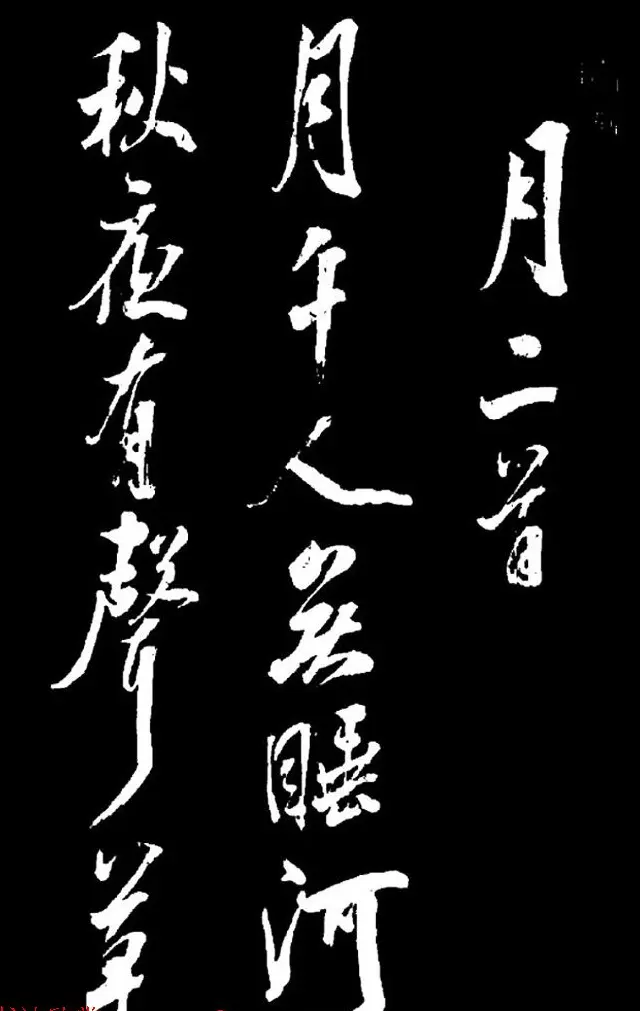 月二首
月午人無睡河
秋夜有聲草